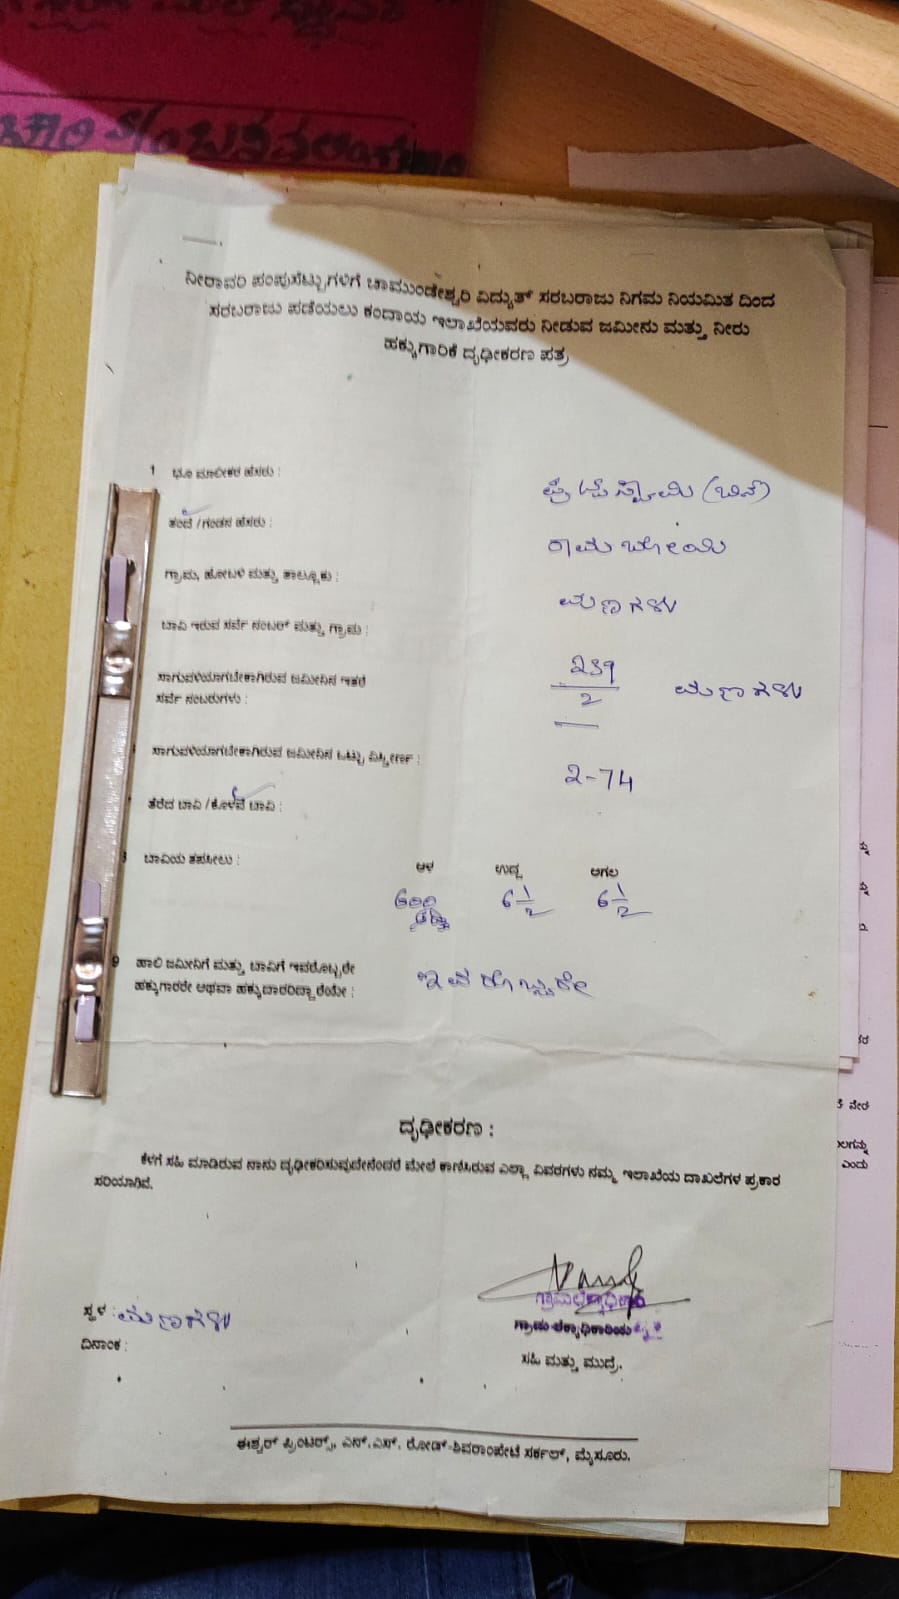 ನೀರಾವರಿ ಪಂಪುಸೆಟ್ಟುಗಳಿಗೆ ಚಾಮುಂಡೇಶ್ವರಿ ವಿದ್ಯುತ್ ಸರಬರಾಜು ನಿಗಮ ನಿಯಮಿತ ದಿಂದ
ಸರಬರಾಜು ಪಡೆಯಲು ಕಂದಾಯ ಇಲಾಖೆಯವರು ನೀಡುವ ಜಮೀನು ಮತ್ತು ನೀರು
ಹಕ್ಕುಗಾರಿಕೆ ದೃಢೀಕರಣ ಪತ್ರ
1 ಭೂ ಮಾಲೀಕರ ಹೆಸರು :
ತಂದೆ /ಗಂಡನ ಹೆಸರು : ರಾಮ ಬೋಯಿ
ಗ್ರಾಮ, ಹೋಬಳಿ ಮತ್ತು ತಾಲ್ಲೂಕು : ಮಣಗಳು
ಬಾವಿ ಇರುವ ಸರ್ವೆ ನಂಬರ್ ಮತ್ತು ಗ್ರಾಮ :
ಸಾಗುವಳಿಯಾಗಬೇಕಾಗಿರುವ ಜಮೀನಿನ ಇತರೆ 239/2 ಮಣಗಳು
ಸರ್ವೆ ನಂಬರುಗಳು :
ಸಾಗುವಳಿಯಾಗಬೇಕಾಗಿರುವ ಜಮೀನಿನ ಒಟ್ಟು ವಿಸ್ತೀರ್ಣ : 2-74
ತೆರೆದ ಬಾವಿ /ಕೊಳವೆ ಬಾವಿ :
ಬಾವಿಯ ತಪಸೀಲು : ಆಳ ಉದ್ದ ಅಗಲ
6 1/2 6 1/2
9 ಹಾಲಿ ಜಮೀನಿಗೆ ಮತ್ತು ಬಾವಿಗೆ ಇವರೊಬ್ಬರೇ ಇವರೊಬ್ಬರೇ
ಹಕ್ಕುಗಾರರೇ ಅಥವಾ ಹಕ್ಕುದಾರರಿದ್ದಾರೆಯೇ :
ದೃಢೀಕರಣ :
ಕೆಳಗೆ ಸಹಿ ಮಾಡಿರುವ ನಾನು ದೃಢೀಕರಿಸುವುದೇನೆಂದರೆ ಮೇಲೆ ಕಾಣಿಸಿರುವ ಎಲ್ಲಾ ವಿವರಗಳು ನಮ್ಮ ಇಲಾಖೆಯ ದಾಖಲೆಗಳ ಪ್ರಕಾರ
ಸರಿಯಾಗಿವೆ.
ಗ್ರಾಮಲೆಕ್ಕಾಧಿಕಾರಿ
ಸ್ಥಳ : ಮಣಗಳು
ಗ್ರಾಮ ಲೆಕ್ಕಾಧಿಕಾರಿಯ
ದಿನಾಂಕ :
ಸಹಿ ಮತ್ತು ಮುದ್ರೆ.
ಈಶ್ವರ್ ಪ್ರಿಂಟರ್ಸ್, ಎನ್.ಎಸ್. ರೋಡ್-ಶಿವರಾಂಪೇಟೆ ಸರ್ಕಲ್, ಮೈಸೂರು.